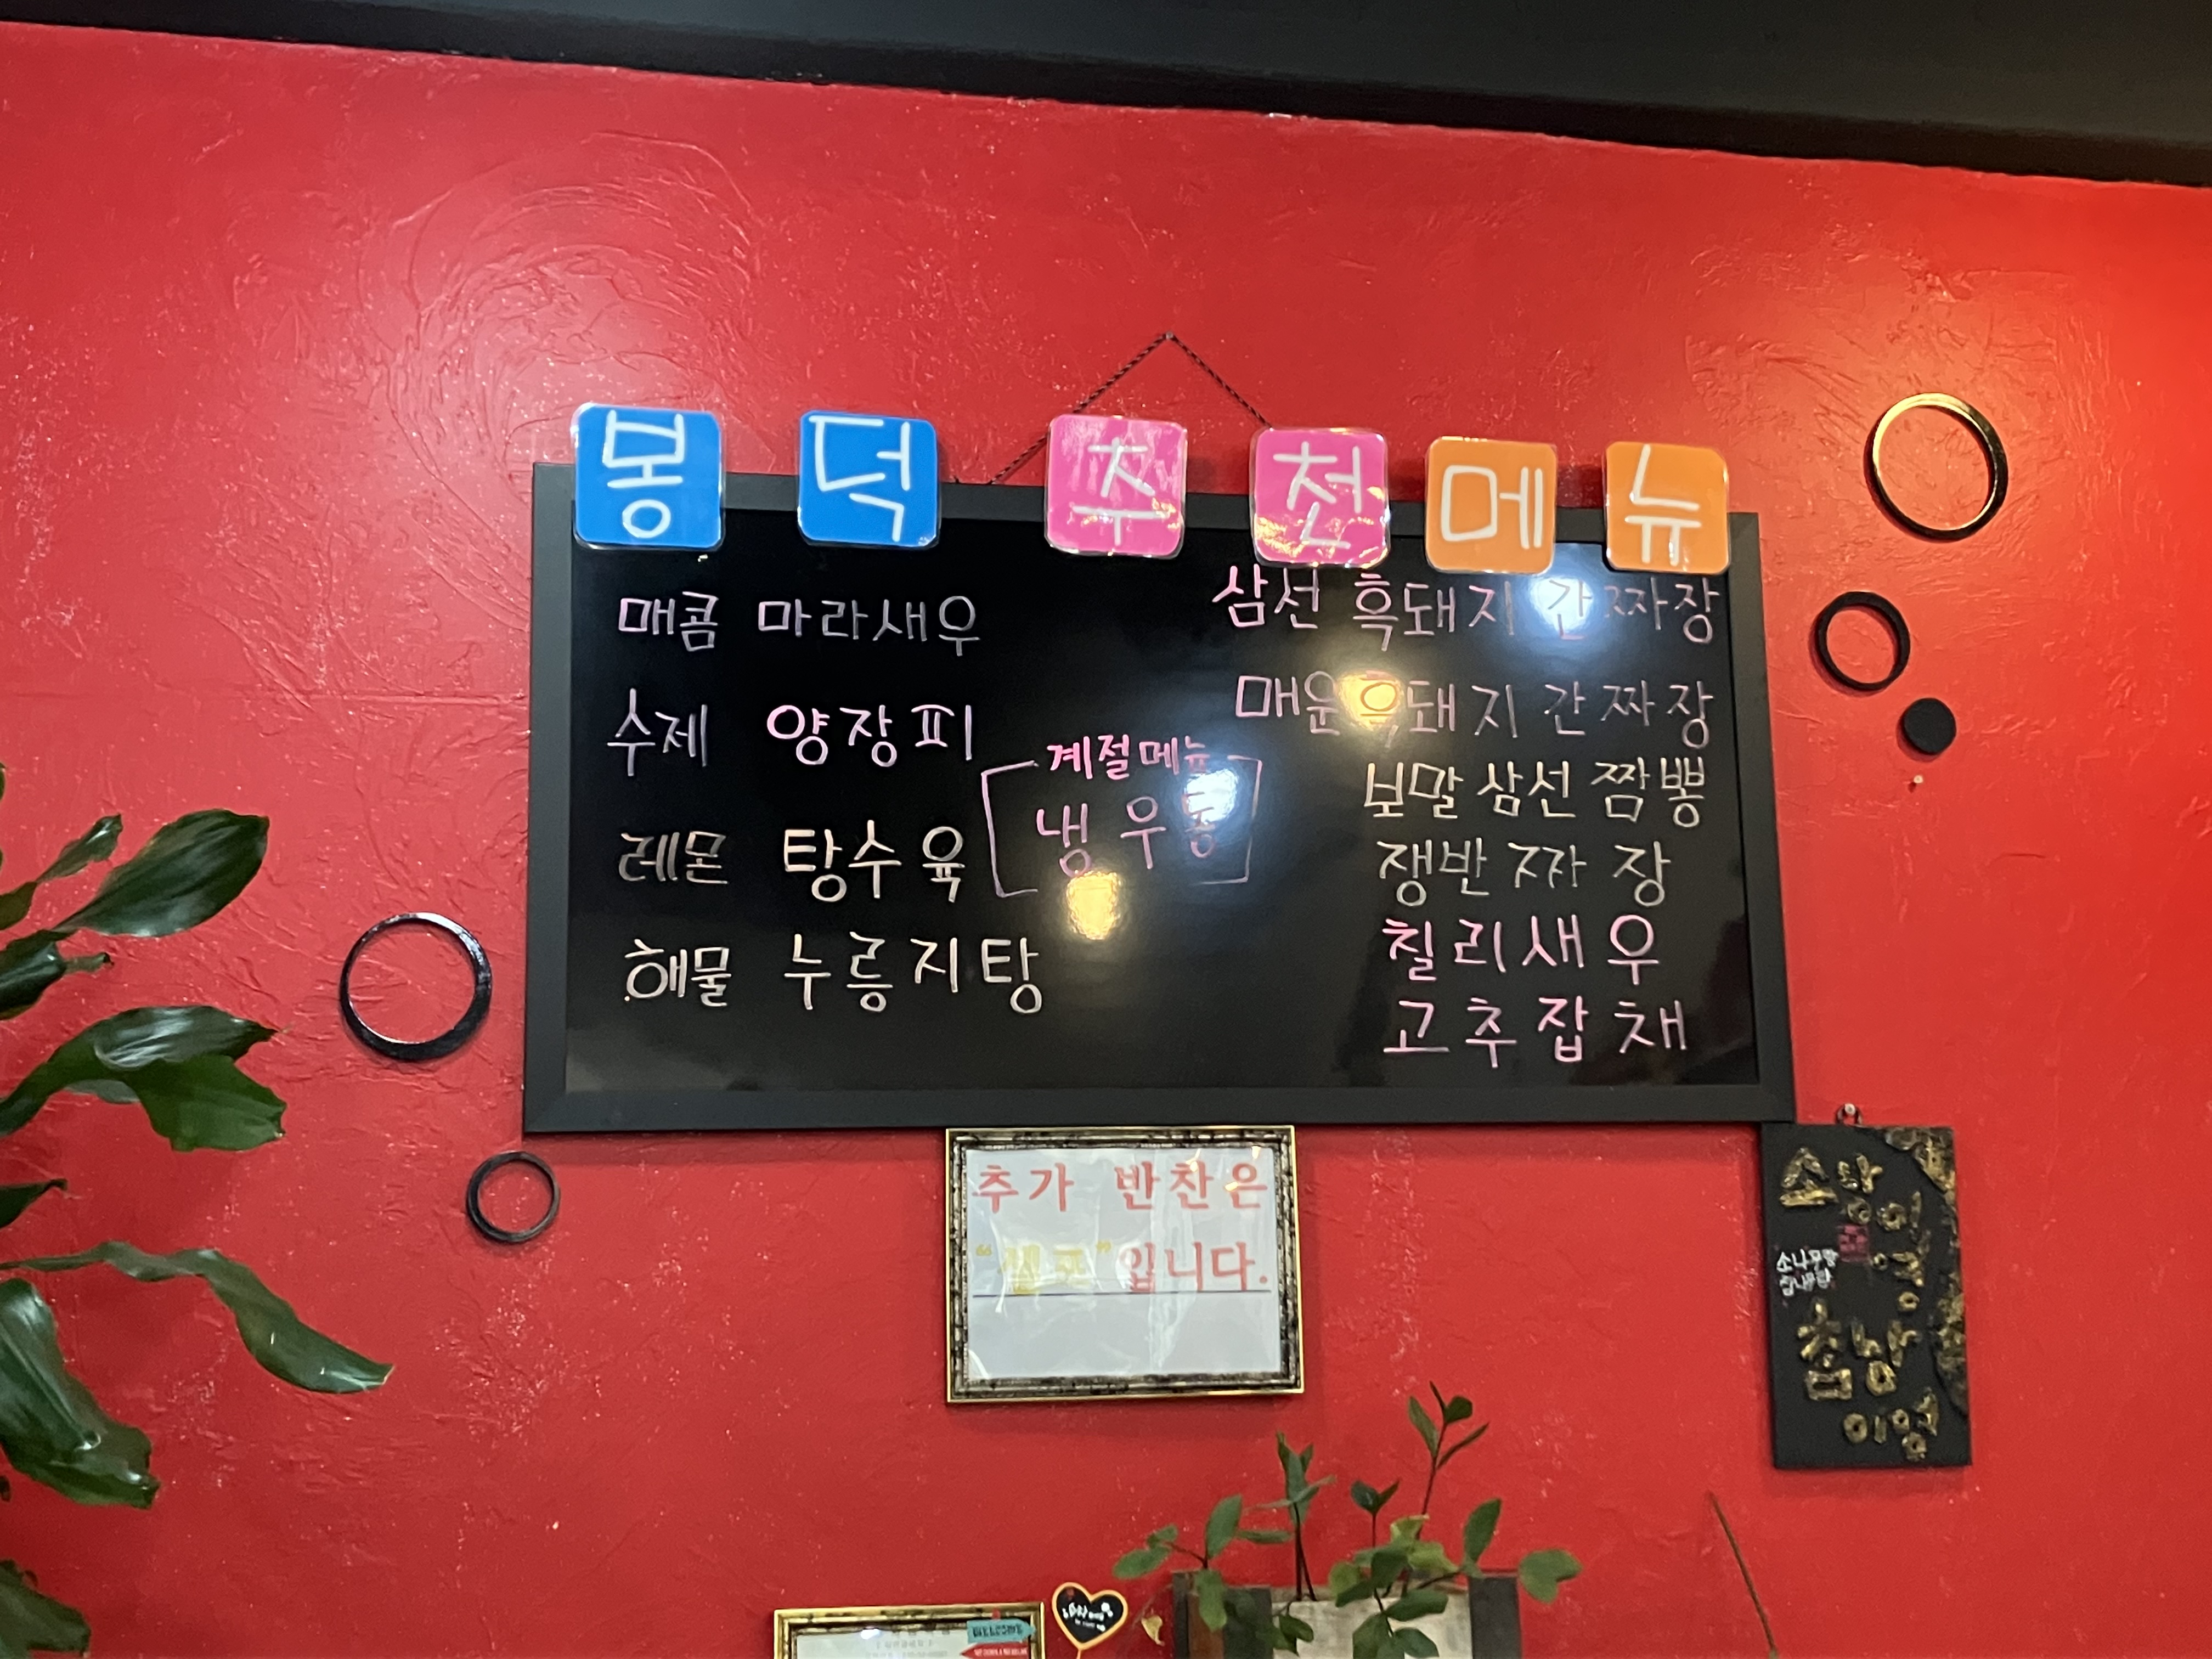 봉덕 추천메뉴
매콤 마라새우
수제 양장피
레몬 탕수육
해물 누룽지탕
계절메뉴
냉우동
삼선 흑돼지 간짜장
매운 흑돼지 간짜장
보말 삼선 짬뽕
쟁반짜장
칠리새우
고추잡채
추가 반찬은
"셀프"입니다.
WELCOME